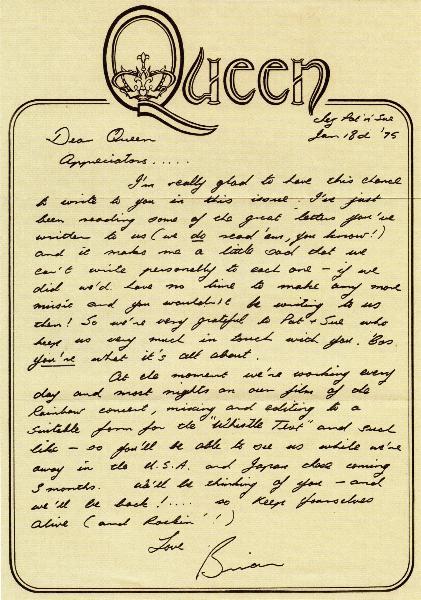 Queen
c/o Pat 'n' Sue
Jan 18th '75
Dear Queen
Appreciators.....
I'm really glad to have this chance
to write to you in this issue. I've just
been reading some of the great letters you've
written to us (we do read 'em, you know!)
and it makes me a little sad that we
can't write personally to each one - if we
did we'd have no time to make any more
music and you wouldn't be writing to us
then! So we're very grateful to Pat + Sue who
keep us very much in touch with you. Cos
you're what it's all about.
At the moment we're working every
day and most nights on our film of the
Rainbow concert, mixing and editing to a
suitable form for the "Whistle Test" and such
like - so you'll be able to see us while we're
away in the U.S.A. and Japan these coming
3 months. We'll be thinking of you - and
we'll be back!.... so keep yourselves
alive (and Rockin'!)
Love
Brian